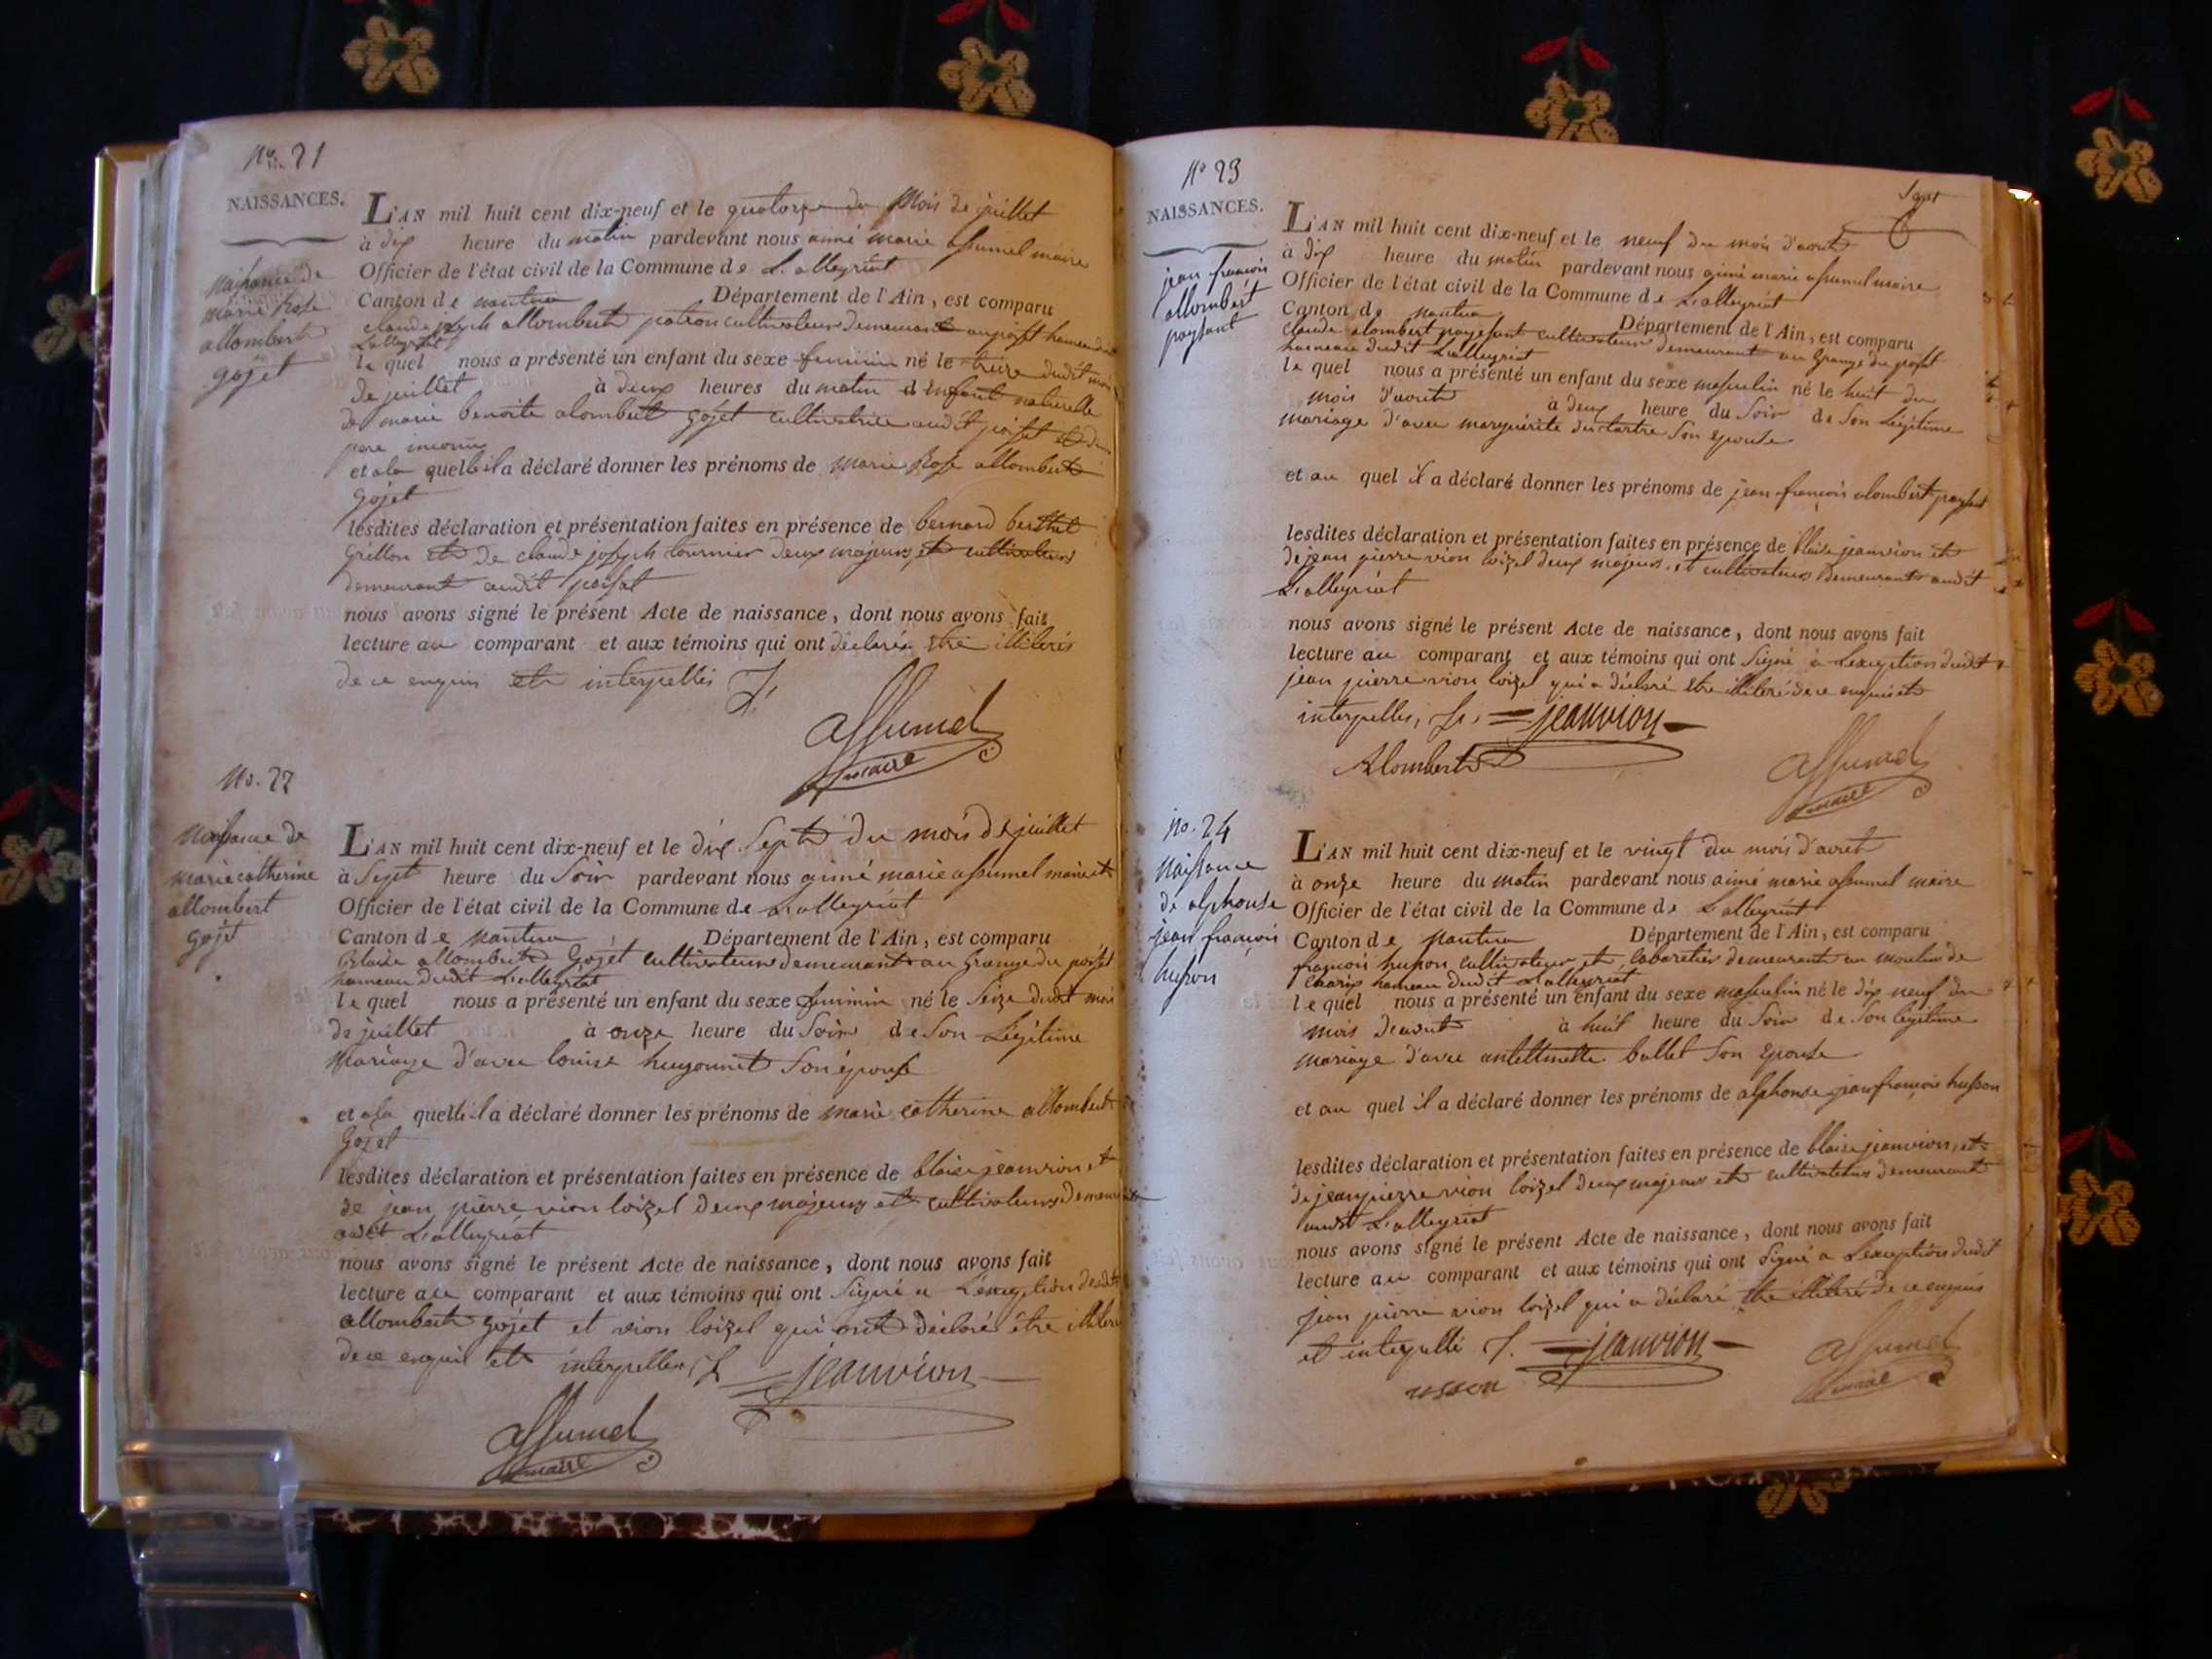 No. 21
NAISSANCES.
Naissance de
Marie Rose
allombert
gojet
L'AN mil huit cent dix-neuf et le quatorze du Mois de juillet
à dix heure du matin pardevant nous aimé marie assumel maire
Officier de l'état civil de la Commune de L'alleyriat
Canton de nantua Département de l'Ain, est comparu
claude joseph allombert patron cultivateur demeurant au poisat hameau
L'alleyriat
le quel nous a présenté un enfant du sexe feminin né le treize dudit mois
de juillet à deux heures du matin d'enfant naturelle
de marie benoite alombert gojet cultivatrice audit poisat et de
pere inconnu
et a la quelle il a déclaré donner les prénoms de marie Rose allombert
Gojet
lesdites déclaration et présentation faites en présence de bernard berthet
Grillon et de claude joseph tournier deux majeurs, et cultivateurs
demeurant audit poisat
nous avons signé le présent Acte de naissance, dont nous avons fait
lecture au comparant et aux témoins qui ont déclarés etre illiterés
de ce enquis et interpellés
assumel
maire
No. 22
Naissance de
marie catherine
allombert
gojet
L'AN mil huit cent dix-neuf et le dix Sept du mois de juillet
à Sept heure du Soir pardevant nous aimé marie assumel maire et
Officier de l'état civil de la Commune de L'alleyriat
Canton de nantua Département de l'Ain, est comparu
Blaise allombert Gojet cultivateur demeurant au Grange du poisat
hameau dudit L'alleyriat
le quel nous a présenté un enfant du sexe feminin né le Seize dudit mois
de juillet à onze heure du Soir de Son Légitime
Mariage d'avec louise hugonnet Son épouse
et a la quelle il a déclaré donner les prénoms de marie catherine allombert
Gojet
lesdites déclaration et présentation faites en présence de blaise jeanvion et
de jean pierre vion loizel deux majeurs et cultivateurs
audit L'alleyriat
nous avons signé le présent Acte de naissance, dont nous avons fait
lecture au comparant et aux témoins qui ont Signé a L'exception desdits
allombert gojet et vion loizel qui ont déclaré être
de ce enquis et interpellés
jeanvion
assumel
maire
No 23
NAISSANCES.
jean francois
allombert
paysant
L'AN mil huit cent dix-neuf et le neuf du mois d'aout
à dix heure du matin pardevant nous aimé marie assumel maire
Officier de l'état civil de la Commune de L'alleyriat
Canton de nantua Département de l'Ain, est comparu
claude alombert payesant cultivateur demeurant au Grange du poisat
hameau dudit L'alleyriat
le quel nous a présenté un enfant du sexe masculin né le huit du
mois d'aout à deux heure du Soir de Son Légitime
mariage d'avec marguerite Son epouse
et au quel il a déclaré donner les prénoms de jean françois alombert paysant
lesdites déclaration et présentation faites en présence de blaise jeanvion et
de jean pierre vion loizel deux majeurs et cultivateurs demeurant audit
L'alleyriat
nous avons signé le présent Acte de naissance, dont nous avons fait
lecture au comparant et aux témoins qui ont Signé à L'exception dudit
jean pierre vion loizel qui a déclaré etre illiteré de ce enquis et
interpellés, jeanvion
Alombert
assumel
maire
no. 24
Naissance
de alphonse
jean francois
husson
L'AN mil huit cent dix-neuf et le vingt du mois d'aout
à onze heure du matin pardevant nous aimé marie assumel maire
Officier de l'état civil de la Commune de L'alleyriat
Canton de Nantua Département de l'Ain, est comparu
francois husson cultivateur et cabaretier demeurant au moulin de
charix hameau dudit L'alleyriat
le quel nous a présenté un enfant du sexe masculin né le dix neuf du
mois d'aout à huit heure du Soir de Son légitime
mariage d'avec ballet Son Epouse
et au quel il a déclaré donner les prénoms de alphonse jean françois husson
lesdites déclaration et présentation faites en présence de blaise jeanvion, et
de jean pierre vion loizel deux majeurs et cultivateurs demeurant
audit L'alleyriat
nous avons signé le présent Acte de naissance, dont nous avons fait
lecture au comparant et aux témoins qui ont Signé a L'exception dudit
jean pierre vion loizel qui a déclaré etre illiteré de ce enquis
et interpellé jeanvion
usson
assumel
maire